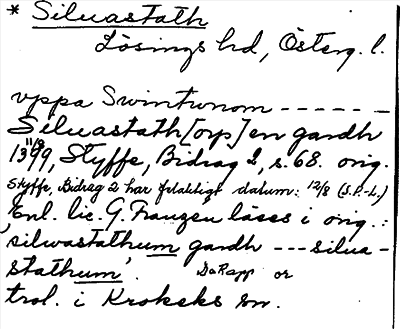 * Siluastath
Lösings hd, Österg. l.
vppa Swintunom - - - - - -
Siluastath [orp] en gardh
11/8
1399, Styffe, Bidrag 2, s. 68. orig.
Styffe, Bidrag 2 har felaktigt datum: 12/8 (S.P.-L.)
Enl. lic. G. Franzén läses i orig.:
'silwastathum gardh - - - silua-
stathum'. DaRapp or
trol. i Krokeks sn.